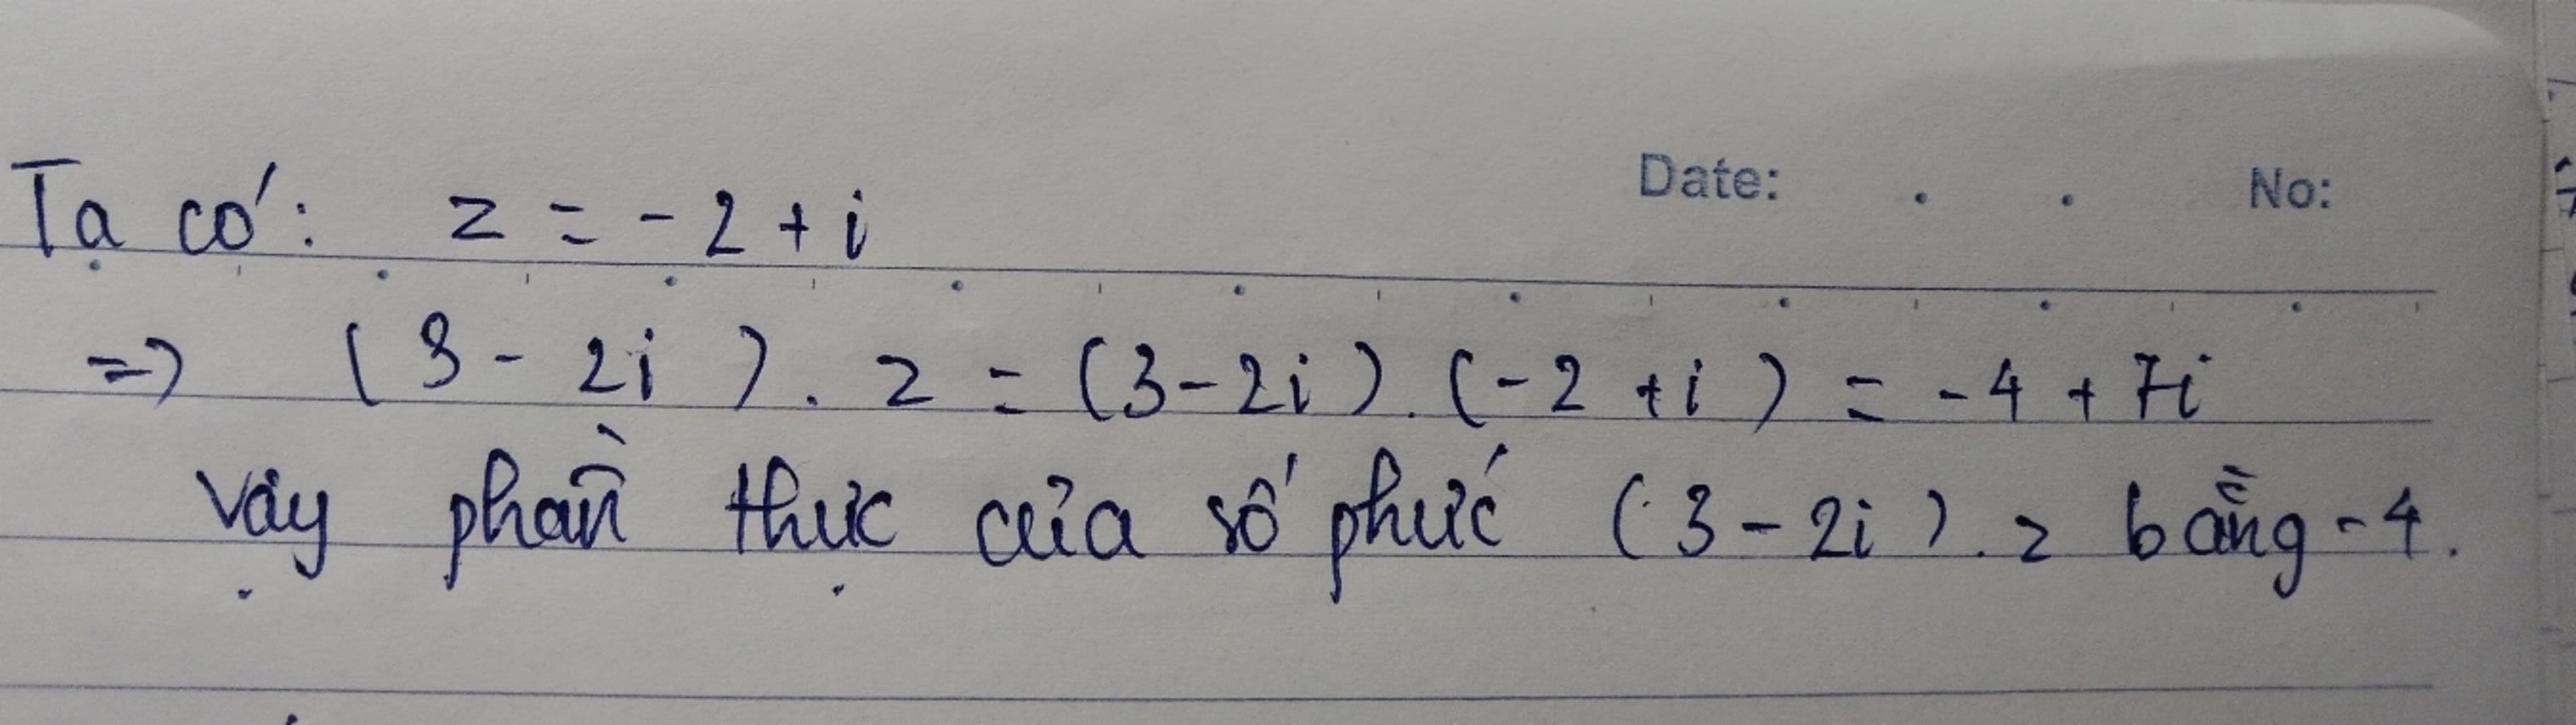 Date: . . No:
Ta có: z = -2 + i
=> (3 - 2i). z = (3 - 2i). (-2 + i) = -4 + 7i
Vậy phần thực của số phức (3 - 2i). z bằng -4.